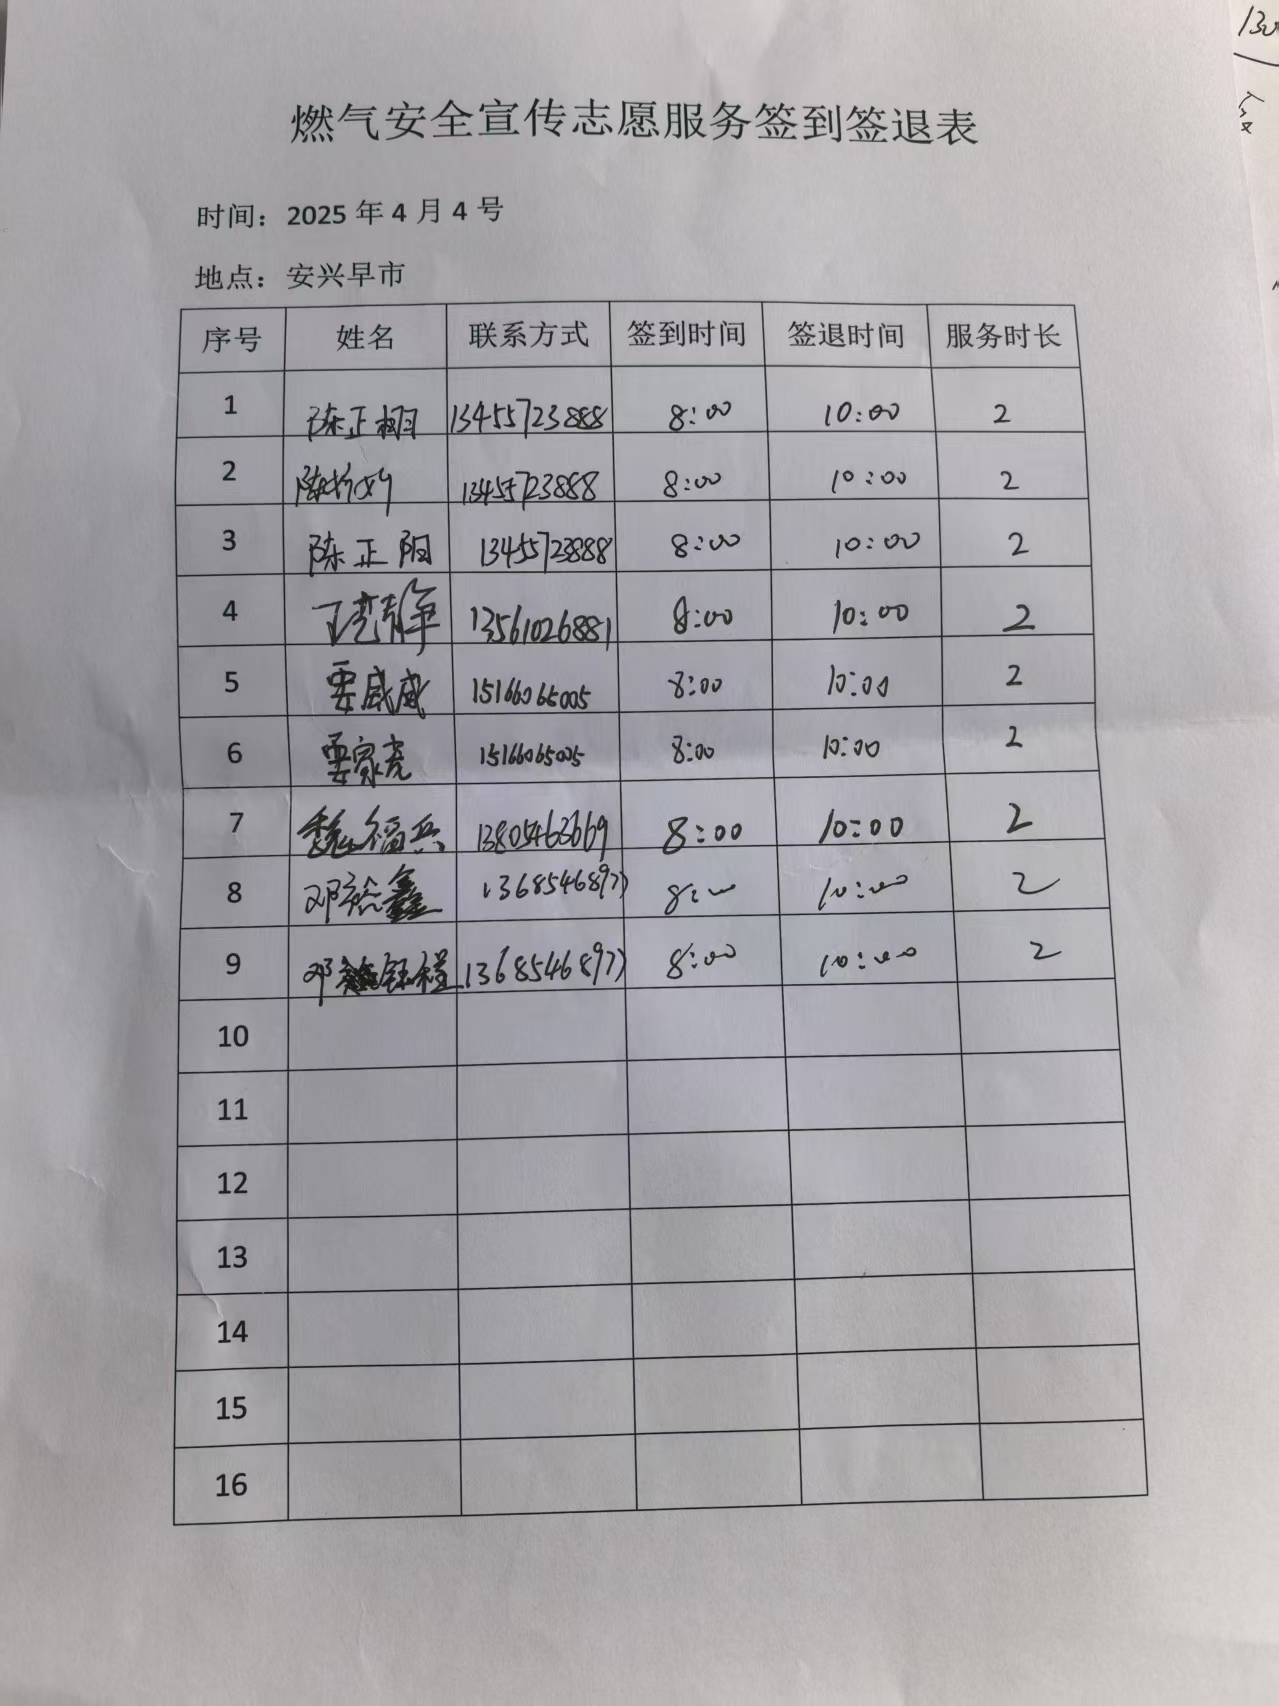 燃气安全宣传志愿服务签到签退表
时间：2025年4月4号
地点：安兴早市
序号 姓名 联系方式 签到时间 签退时间 服务时长
1 陈正栩 13455723888 8:00 10:00 2
2 13455723888 8:00 10:00 2
3 陈正阳 13455723888 8:00 10:00 2
4 13561026881 8:00 10:00 2
5 要威威 15166065005 8:00 10:00 2
6 要家亮 15166065005 8:00 10:00 2
7 魏福兵 13805463669 8:00 10:00 2
8 邓裕鑫 13685468977 8:00 10:00 2
9 邓钰程 13685468977 8:00 10:00 2
10
11
12
13
14
15
16